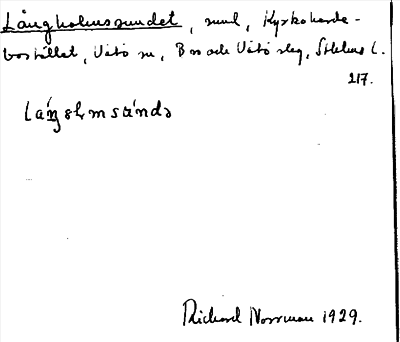 Långholmssundet, sund, Kyrkoherde-
bostället, Vätö sn, Bro och Vätö skg, Sthlms l.
217.
Richard Norrman 1929.